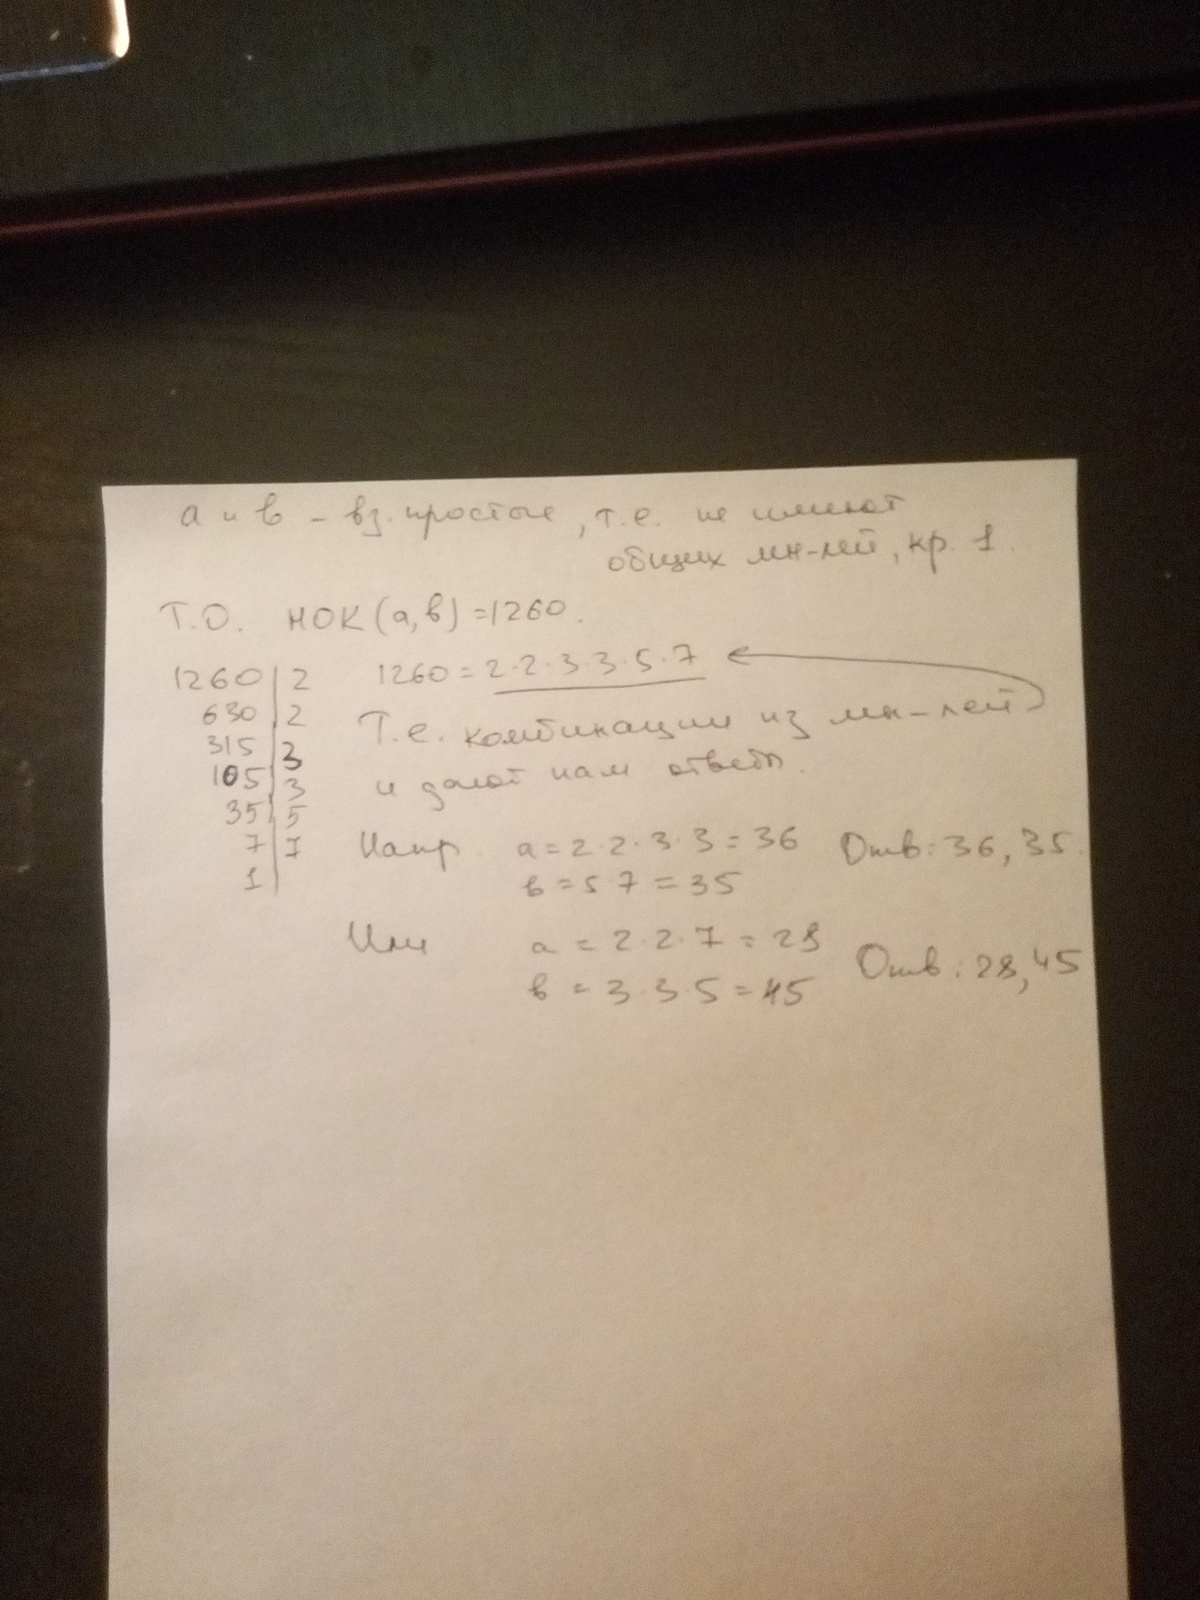 а и в - вз. простые, т.е. не имеют
общих мн-лей, кр. 1.
Т.О. НОК(а,в)=1260.
1260|2 1260=2·2·3·3·5·7
630|2 Т.е. комбинации из мн-лей
315|3
105|3 и дают нам ответы.
35|5
7|7 Напр. а=2·2·3·3=36 Отв: 36, 35.
1| в=5·7=35
Или а = 2·2·7 = 28
в = 3·3·5 = 45 Отв: 28, 45